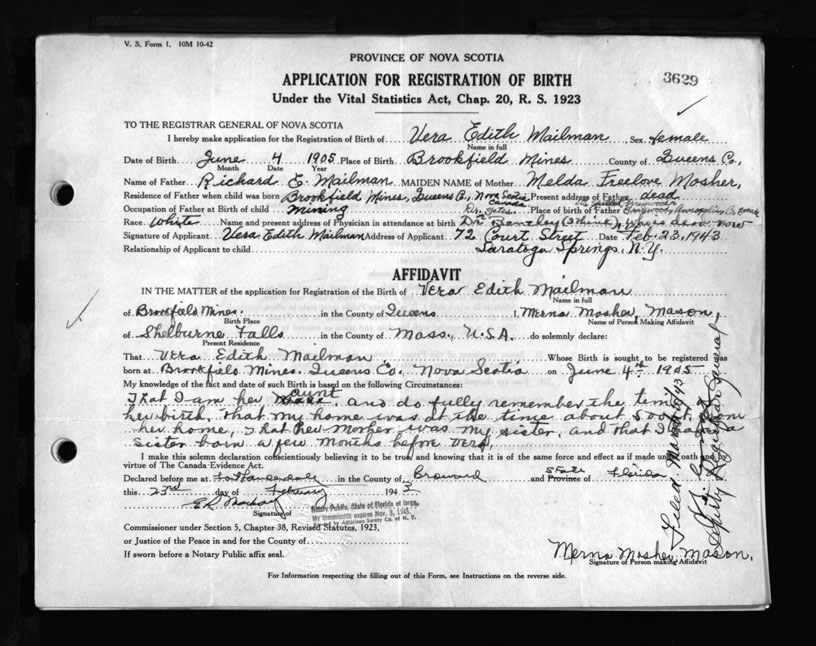 V. S. Form 1. 10M 10-42
PROVINCE OF NOVA SCOTIA
APPLICATION FOR REGISTRATION OF BIRTH
3629
Under the Vital Statistics Act, Chap. 20, R. S. 1923
TO THE REGISTRAR GENERAL OF NOVA SCOTIA
I hereby make application for the Registration of Birth of Vera Edith Mailman Sex female
Name in full
Date of Birth June 4 1905 Place of Birth Brookfield Mines County of Queens Co.,
Month Date Year
Name of Father Richard E. Mailman MAIDEN NAME of Mother Melda Freelove Mosher,
Residence of Father when child was born Brookfield Mines, Queens Co., Nova Scotia Canada Present address of Father dead
Occupation of Father at Birth of child mining Place of birth of Father Annapolis Co.
Race White Name and present address of Physician in attendance at birth Dr.
Signature of Applicant Vera Edith Mailman Address of Applicant 72 Court Street Date Feb. 23, 1943
Relationship of Applicant to child Saratoga Springs, N.Y.
AFFIDAVIT
IN THE MATTER of the application for Registration of the Birth of Vera Edith Mailman
Name in full
of Brookfield Mines in the County of Queens I, Merna Mosher Mason,
Birth Place Name of Person Making Affidavit
of Shelburne Falls in the County of Mass., U.S.A. do solemnly declare:
Present Residence
That Vera Edith Mailman Whose Birth is sought to be registered was
born at Brookfield Mines. Queens Co., Nova Scotia on June 4th 1905
My knowledge of the fact and date of such Birth is based on the following Circumstances:
That I am her aunt and do fully remember the time
her birth, that my home was at the time about 500 ft. from
her home, that her Mother was my sister, and that I have a
sister born a few months before Vera.
I make this solemn declaration conscientiously believing it to be true, and knowing that it is of the same force and effect as if made under oath and by
virtue of The Canada Evidence Act.
Declared before me at Ft Lauderdale in the County of Broward and State Province of Florida
this 23rd day of February 1943
Signature of
Notary Public, State of Florida at large.
My commission expires Nov. 3, 1945.
Bonded by American Surety Co. of N. Y.
Commissioner under Section 5, Chapter 38, Revised Statutes, 1923,
or Justice of the Peace in and for the County of
If sworn before a Notary Public affix seal.
Merna Mosher Mason,
Signature of Person making Affidavit
For Information respecting the filling out of this Form, see Instructions on the reverse side.
Deputy Registrar General